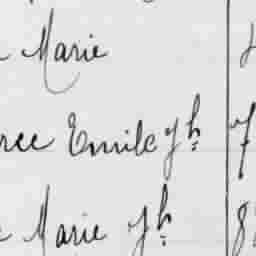 Marie
ree Emile Jh
Marie Jh 8